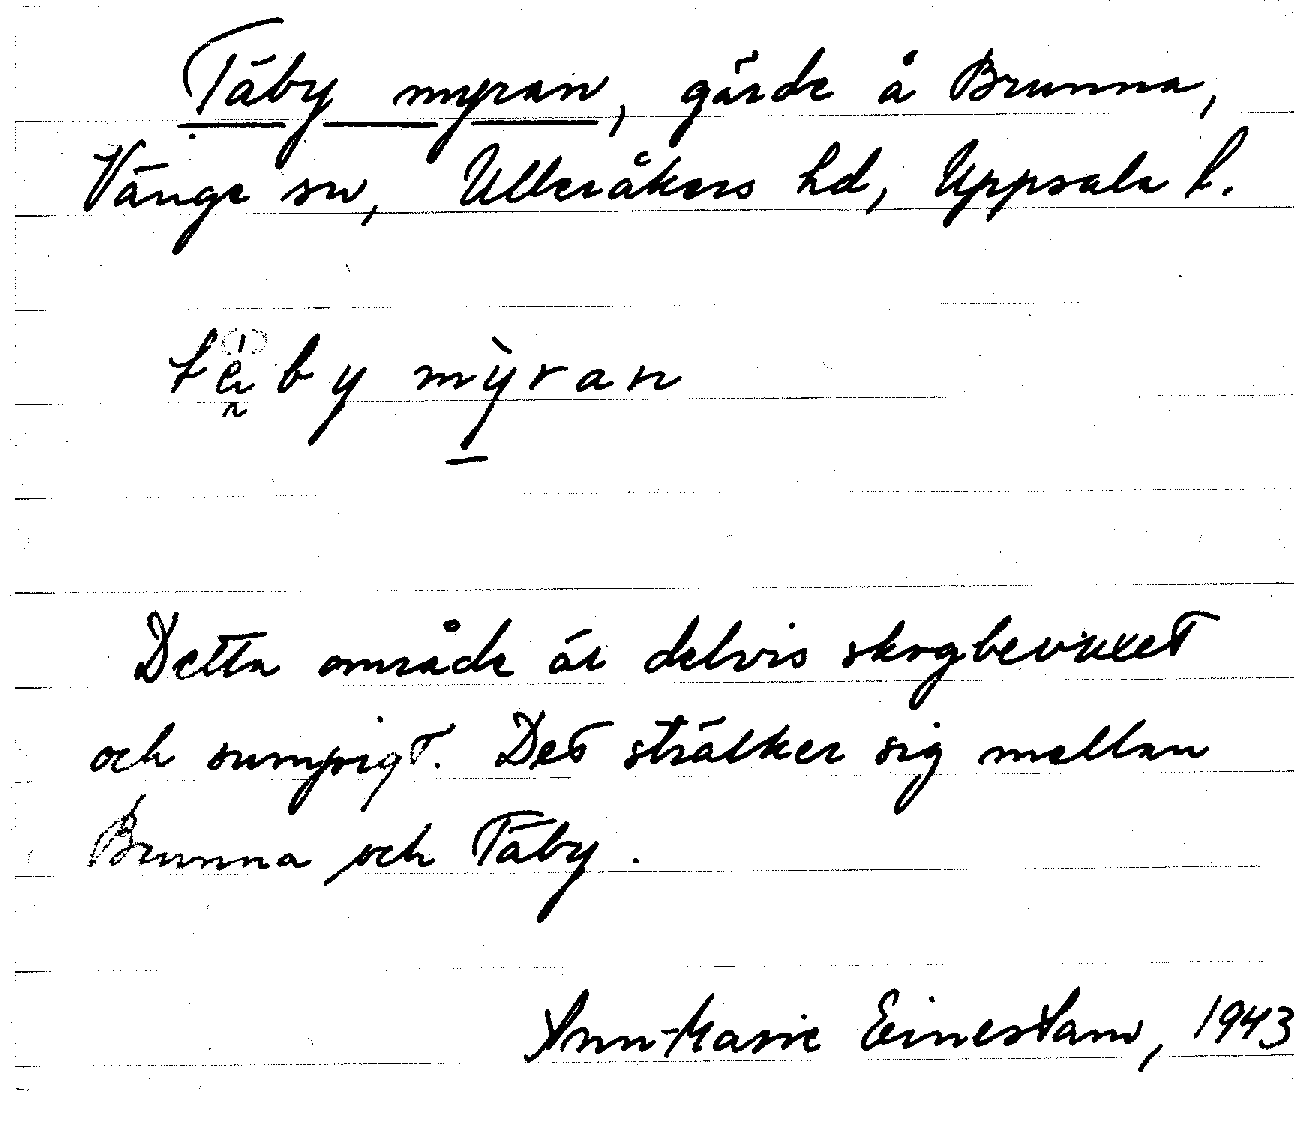 Täby myran, gärde å Brunna,
Vänge sn, Ulleråkers hd, Uppsala l.
täby mỳran
Detta område är delvis skogbevuxet
och sumpigt. Det sträcker sig mellan
Brunna och Täby.
Ann-Marie Einestam, 1943